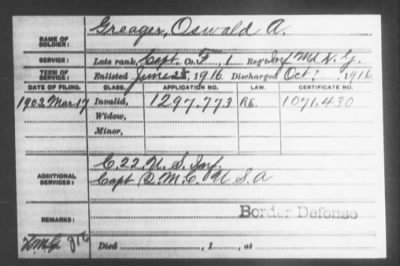 NAME OF SOLDIER: Greager, Oswald A.
SERVICE: Late rank, Capt. Co. F, 1 Reg't Inf Md N. G.
TERM OF SERVICE: Enlisted June 28, 1916 Discharged Oct. , 1916
DATE OF FILING. CLASS. APPLICATION NO. LAW. CERTIFICATE NO.
1903 Mar 17 Invalid, 1297.773 RE. 1071.430
Widow,
Minor,
C. 22. U. S. Inf.
ADDITIONAL SERVICES: Capt Q. M. C. U S. A
Border Defense
REMARKS:
Died , 1 , at